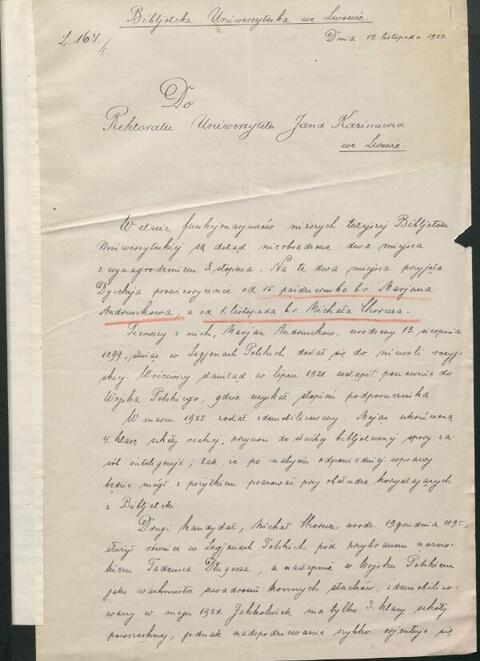 Bibljoteka Uniwersytecka we Lwowie.
L. 164/4
Dnia 12 listopada 1922.
Do
Rektoratu Uniwersytetu Jana Kazimierza
we Lwowie.
W etacie funkcjonarjuszów niższych tutejszej Bibljoteki
Uniwersyteckiej są dotąd nieobsadzone dwa miejsca
z wynagrodzeniem 3. stopnia. Na te dwa miejsca przyjęła
Dyrekcja prowizorycznie od 16. października b.r. Marjana
Andruszkowa, a od 1. listopada b.r. Michała
Pierwszy z nich, Marjan Andruszków, urodzony 13. sierpnia
1899, służąc w Legjonach Polskich dostał się do niewoli rosyj-
skiej. Wróciwszy stamtąd w lipcu 1921. wstąpił ponownie do
Wojska Polskiego, gdzie uzyskał stopień podporucznika.
W marcu 1922. został zdemobilizowany. Mając ukończoną
4. klasę szkoły realnej, przynosi do służby bibljotecznej spory za-
sób inteligencji, tak, że po nabyciu odpowiedniej wprawy
będzie mógł z pożytkiem pracować przy obsłudze korzystających
z Bibljoteki.
Drugi kandydat, Michał urodz. 19 grudnia
służył również w Legjonach Polskich pod przybranem nazwis-
kiem Tadeusza Długosza, a następnie w Wojsku Polskiem
jako wachmistrz konnych strzelców, zdemobilizo-
wany w maju 1921. Jakkolwiek ma tylko 3. klasy szkoły
powszechnej, jednak nadspodziewanie szybko orjentuje się